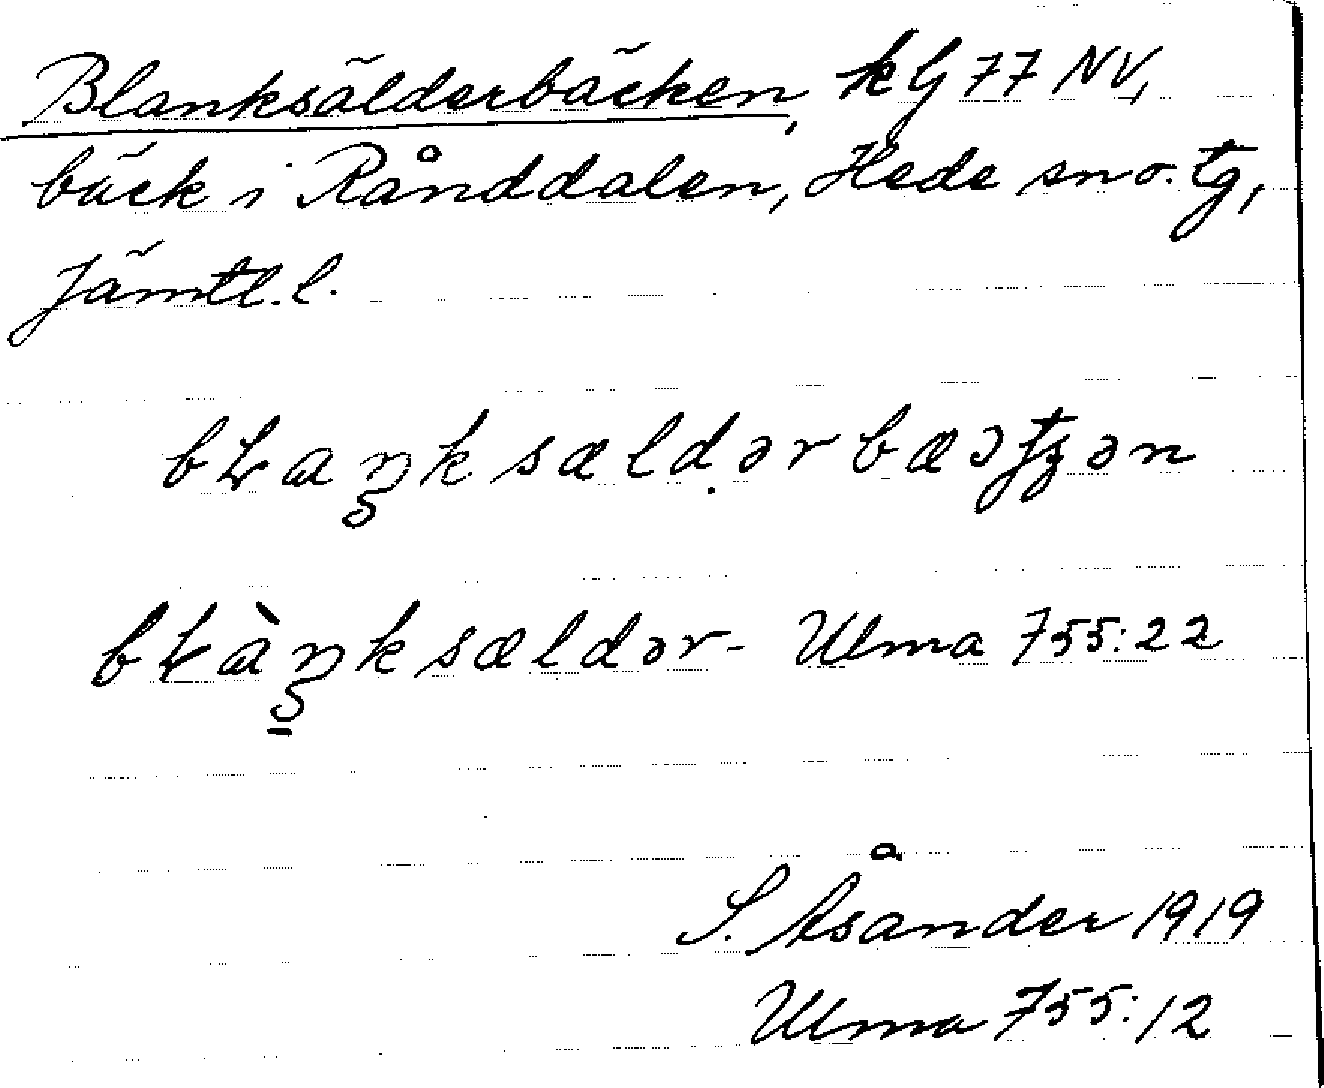 Blanksälderbäcken, kG 77 NV,
bäck i Rånddalen, Hede sn o. tg,
Jämtl. l.
bLaŋksældərbæətʒən
bLàŋksældər- Ulma 755:22
S. Åsander 1919
Ulma 755:12